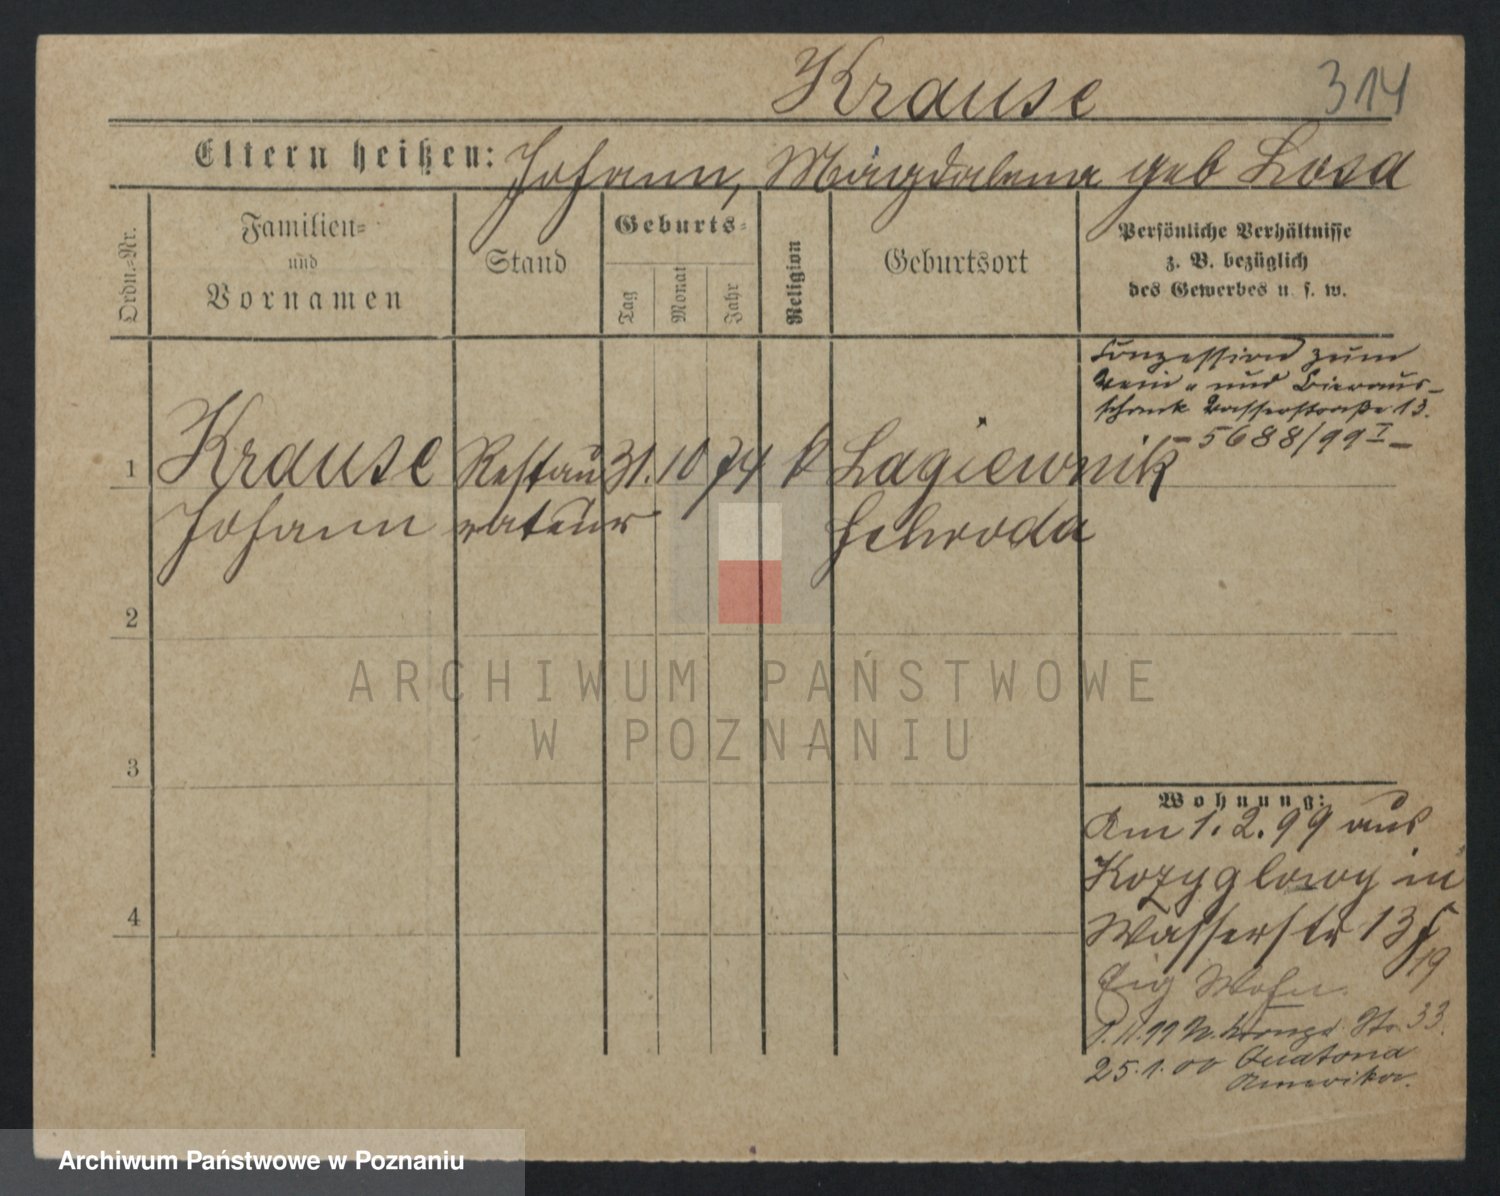 Krause
314
Eltern heißen: Johann, Magdalena geb Losa
Ordn.-Nr.
Familien-
und
Vornamen
Stand
Geburts-
Tag
Monat
Jahr
Religion
Geburtsort
Persönliche Verhältnisse
z. B. bezüglich
des Gewerbes u. s. w.
Konzession zum
Wein- und Bieraus-
schank Wasserstraße 13.
- 5688/99 I -
1 Krause Restau 31. 10 74 k Lagiewnik
Johann rateur Schroda
2
3
4
Wohnung:
Am 1. 2. 99 aus
Kozyglowy in
Wasserstr 13
19
Eig Wohn.
1. 11. 99 Str. 33.
25. 1. 00
Amerika.
ARCHIWUM PAŃSTWOWE
W POZNANIU
Archiwum Państwowe w Poznaniu